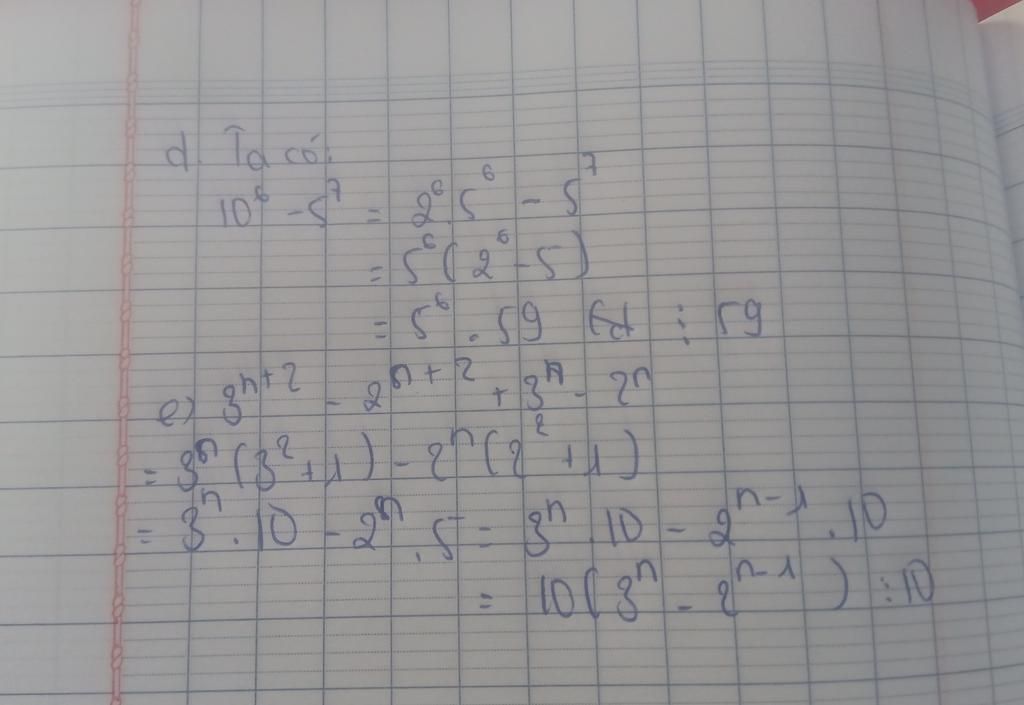 d. Ta có:
10⁶ - 5⁷ = 2⁶.5⁶ - 5⁷
= 5⁶(2⁶ - 5)
= 5⁶ . 59 ⋮ 59
e) 3ⁿ⁺² - 2ⁿ⁺² + 3ⁿ - 2ⁿ
= 3ⁿ(3² + 1) - 2ⁿ(2² + 1)
= 3ⁿ . 10 - 2ⁿ . 5 = 3ⁿ . 10 - 2ⁿ⁻¹ . 10
= 10(3ⁿ - 2ⁿ⁻¹) ⋮ 10